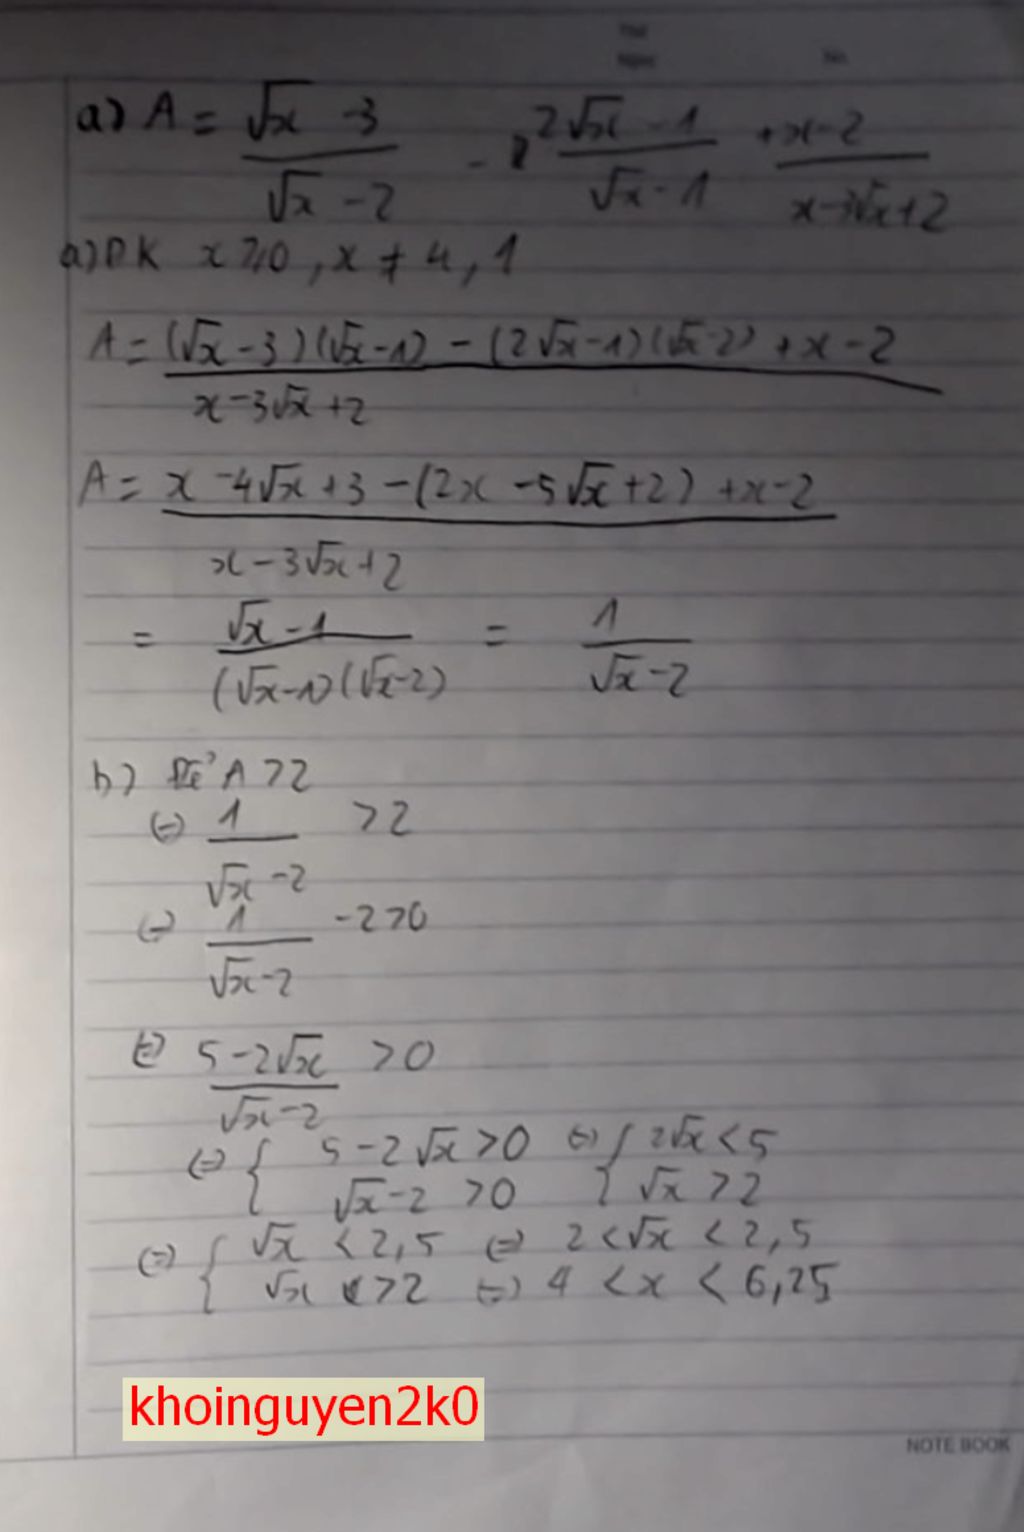 a) A = (√x - 3)/(√x - 2) - (2√x - 1)/(√x - 1) + (x - 2)/(x - 3√x + 2)
a) ĐK x ≥ 0, x ≠ 4, 1
A = ((√x - 3)(√x - 1) - (2√x - 1)(√x - 2) + x - 2)/(x - 3√x + 2)
A = (x - 4√x + 3 - (2x - 5√x + 2) + x - 2)/(x - 3√x + 2)
= (√x - 1)/((√x - 1)(√x - 2)) = 1/(√x - 2)
b) Để A > 2
⇔ 1/(√x - 2) > 2
⇔ 1/(√x - 2) - 2 > 0
⇔ (5 - 2√x)/(√x - 2) > 0
⇔ { 5 - 2√x > 0 ⇔ { 2√x < 5
√x - 2 > 0 √x > 2
⇔ { √x < 2,5 ⇔ 2 < √x < 2,5
√x > 2 ⇔ 4 < x < 6,25
khoinguyen2k0
NOTE BOOK